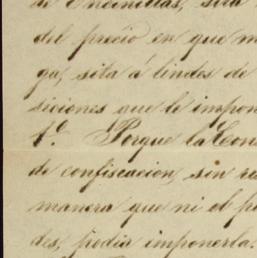 de Encinillas, sita
del precio en que m
ga, sita á lindes de
siciones que le impon
1º. Porque la Cons
de confiscacion, sin re
manera que ni el po
des, podia imponerla.